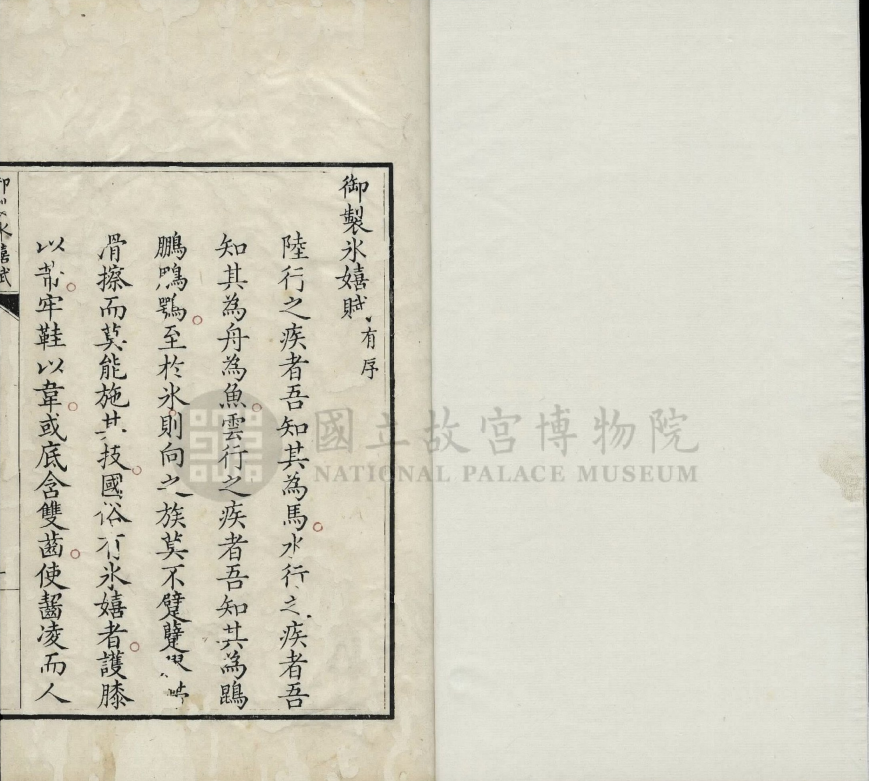 御製氷嬉賦有序
陸行之疾者吾知其為馬水行之疾者吾
知其為舟為魚雲行之疾者吾知其為鵾
鵬鵰鶚至於氷則向之族莫不躄躠
滑擦而莫能施其技國俗有氷嬉者護膝
以芾牢鞋以韋或底含雙齒使齧凌而人
氷嬉賦
國立故宮博物院
NATIONAL PALACE MUSEUM